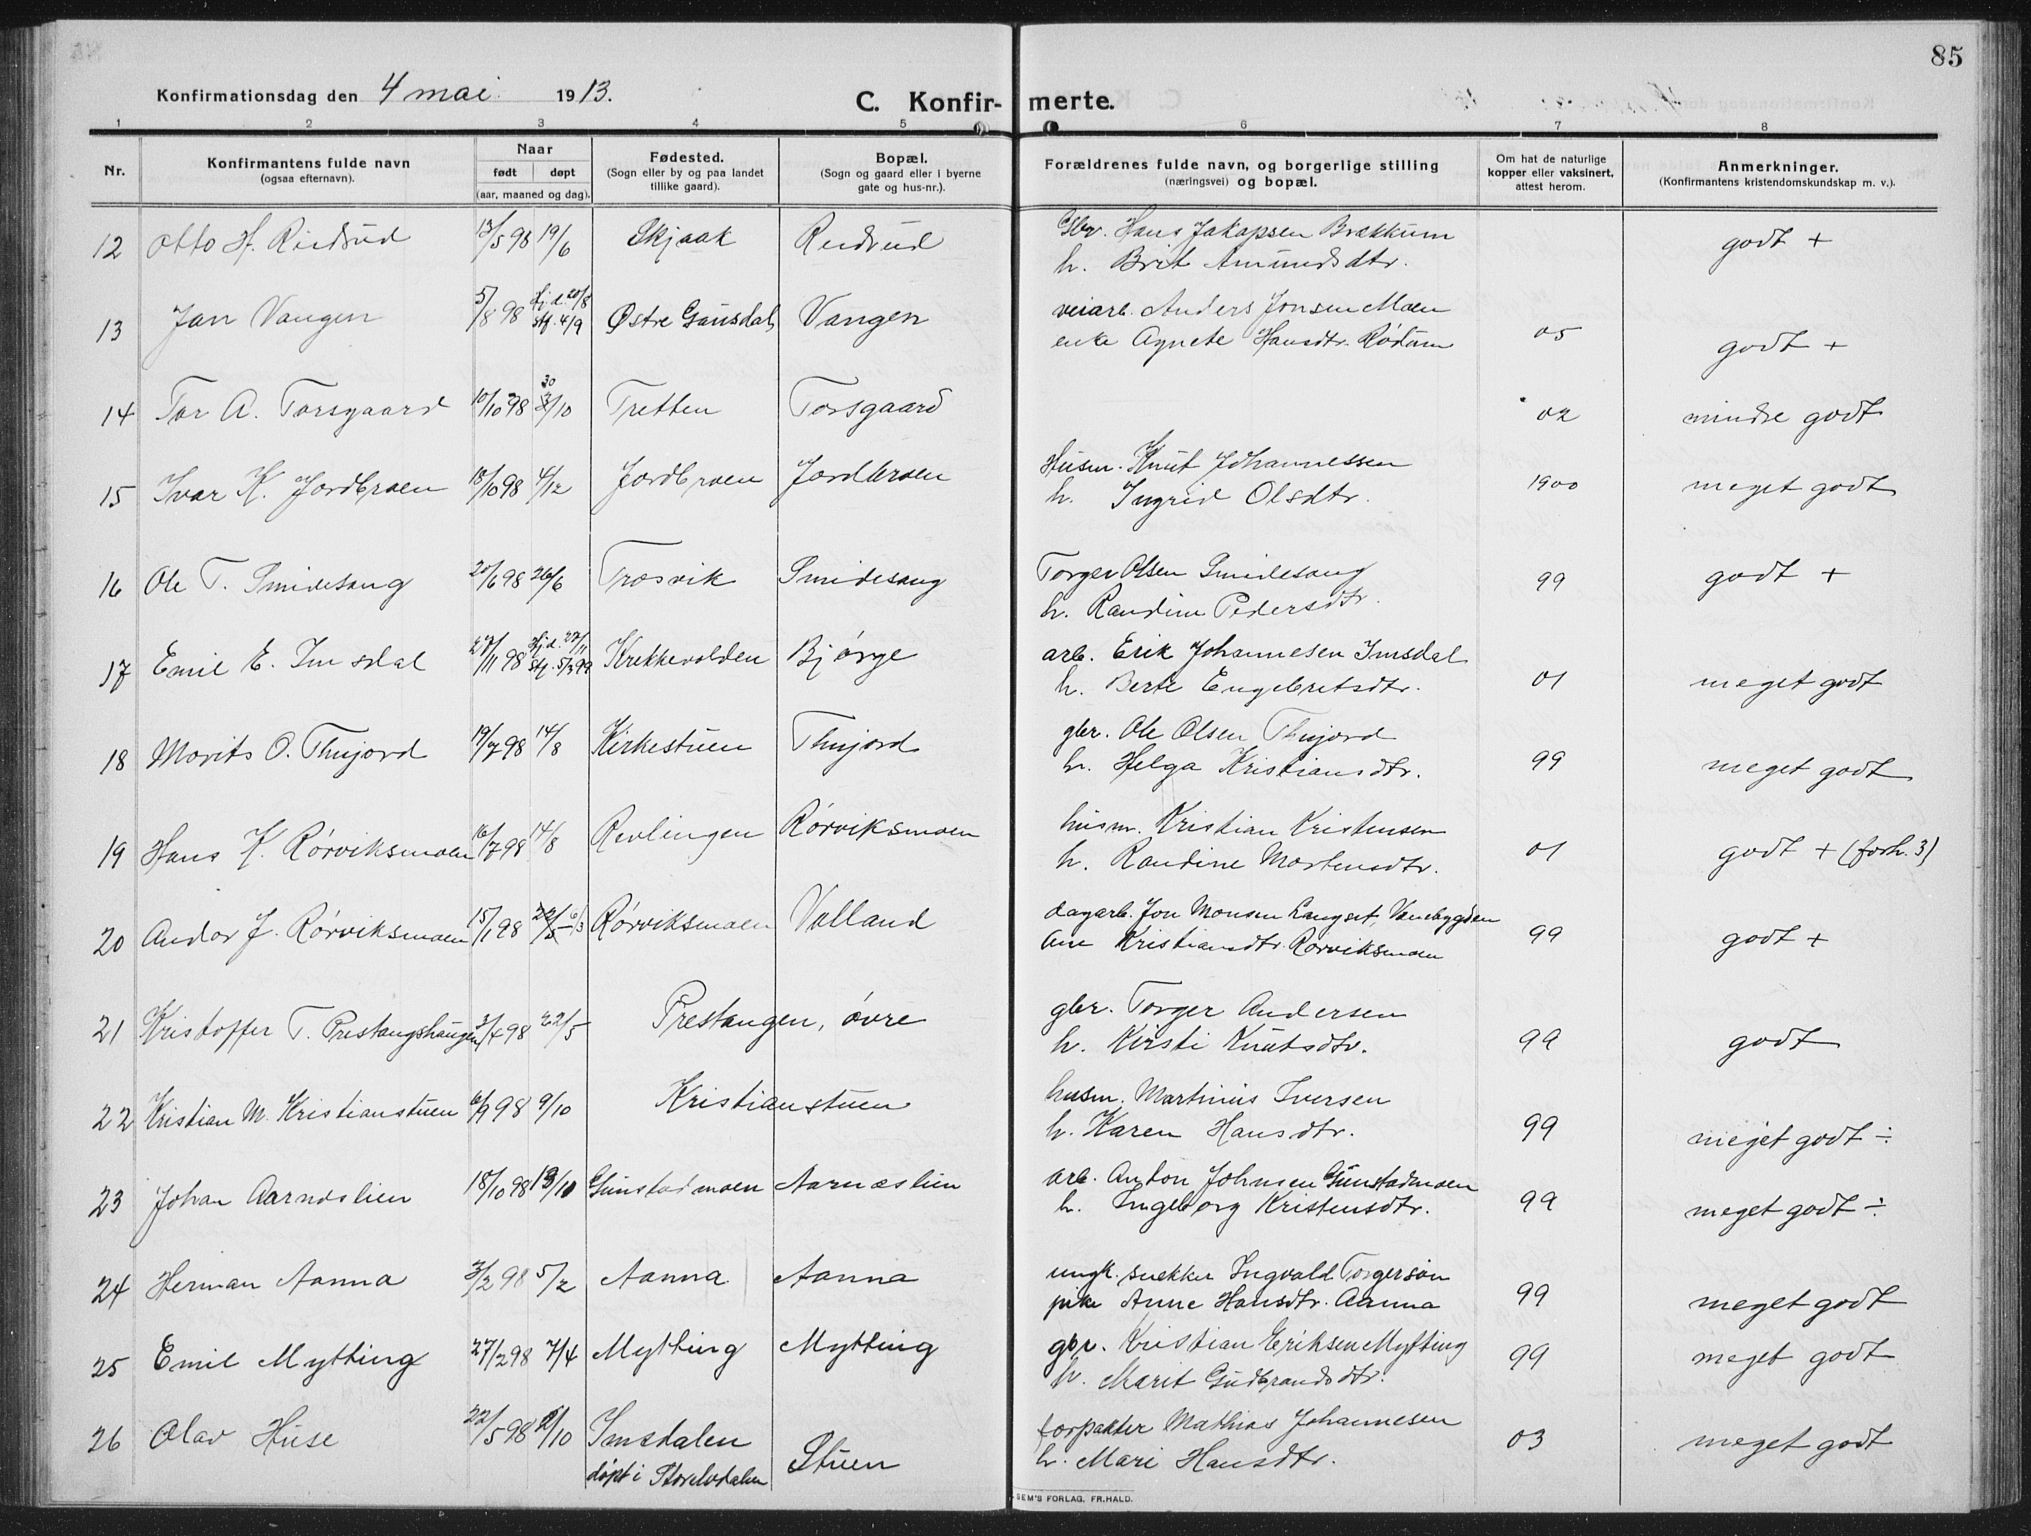 85
Konfirmationsdag den 4 mai 1913.
C. Konfirmerte.
1 2 3 4 5 6 7 8
Nr.
Konfirmantens fulde navn
(ogsaa efternavn).
Naar
født døpt
(aar, maaned og dag).
Fødested.
(Sogn eller by og paa landet
tillike gaard).
Bopæl.
(Sogn og gaard eller i byerne
gate og hus-nr.).
Forældrenes fulde navn, og borgerlige stilling
(næringsvei) og bopæl.
Om hat de naturlige
kopper eller vaksinert,
attest herom.
Anmerkninger.
(Konfirmantens kristendomskundskap m. v.).
12 Otto H. Rudsud 13/5 98 19/6 Skjaak Rudsud
Gbr. Hans Jakopsen Brækkum
h. Brit Amundsdtr.
godt +
13 Jan Vangen 5/8 98 hj.d. 20/8 stf. 4/9 Østre Gausdal Vangen
veiarb. Anders Jonsen Moen
enke Agnete Hansdtr. Rødum
05 godt +
14 Tor A. Torsgaard 10/10 98 30/10 Tretten Torsgaard
02 mindre godt
15 Ivar K. Jordbroen 18/10 98 4/12 Jordbroen Jordbroen
Husm. Knut Johannessen
h. Ingrid Olsdtr.
1900 meget godt
16 Ole T. Smidesang 20/6 98 26/6 Trosvik Smidesang
Torger Olsen Smidesang
h. Randine Pedersdtr.
99 godt +
17 Emil E. Imsdal 27/11 98 hj.d. 27/11 stf. 5/3 99 Krekkevolden Bjørge
arb. Erik Johannesen Imsdal
h. Berte Engebretsdtr.
01 meget godt
18 Morits O. Thujord 19/7 98 14/8 Kirkestuen Thujord
gbr. Ole Olsen Thujord
h. Helga Kristiansdtr.
99 meget godt
19 Hans K. Rørviksmoen 16/7 98 14/8 Revlingen Rørviksmoen
husm. Kristian Kristensen
h. Randine Mortensdtr.
01 godt + (forh. 3)
20 Andor J. Rørviksmoen 15/1 98 22/5 6/3 Rørviksmoen Volland
dagarb. Jon Monsen Langset, Venebygden
Ane Kristiansdtr. Rørviksmoen
99 godt +
21 Kristoffer T. Prestangshaugen 3/4 98 22/5 Prestangen, øvre
gbr. Torger Andersen
h. Kirsti Knutsdtr.
99 godt
22 Kristian M. Kristianstuen 6/9 98 9/10 Kristianstuen
husm. Martinius Iversen
h. Karen Hansdtr.
99 meget godt ÷
23 Johan Aarneslien 18/10 98 Gunstadmoen Aarneslien
arb. Anton Johnsen Gunstadmoen
h. Ingeborg Kristensdtr.
99 meget godt ÷
24 Herman Aanna 3/2 98 5/2 Aanna Aanna
ungk. snekker Ingvald Torgersøn
pike Anne Hansdtr. Aanna
99 meget godt
25 Emil Mytting 27/2 98 7/4 Mytting Mytting
gbr. Kristian Eriksen Mytting
h. Marit Gudbrandsdtr.
99 meget godt
26 Olav Huse 22/5 98 2/10 Imsdalen
døpt i Storelvdalen Stuen
forpakter Mathias Johannesen
h. Mari Hansdtr.
03 meget godt
SEM'S FORLAG, FR.HALD.